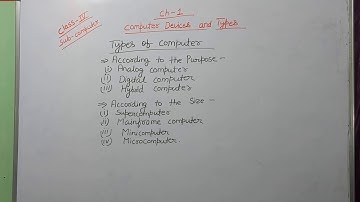 Class-IV
Sub-computer
Ch-1
Computer Devices and Types
Types of Computer
⇒ According to the Purpose -
(i) Analog computer
(ii) Digital computer
(iii) Hybrid computer
⇒ According to the Size -
(i) Supercomputer
(ii) Mainframe computer
(iii) Minicomputer
(iv) Microcomputer.